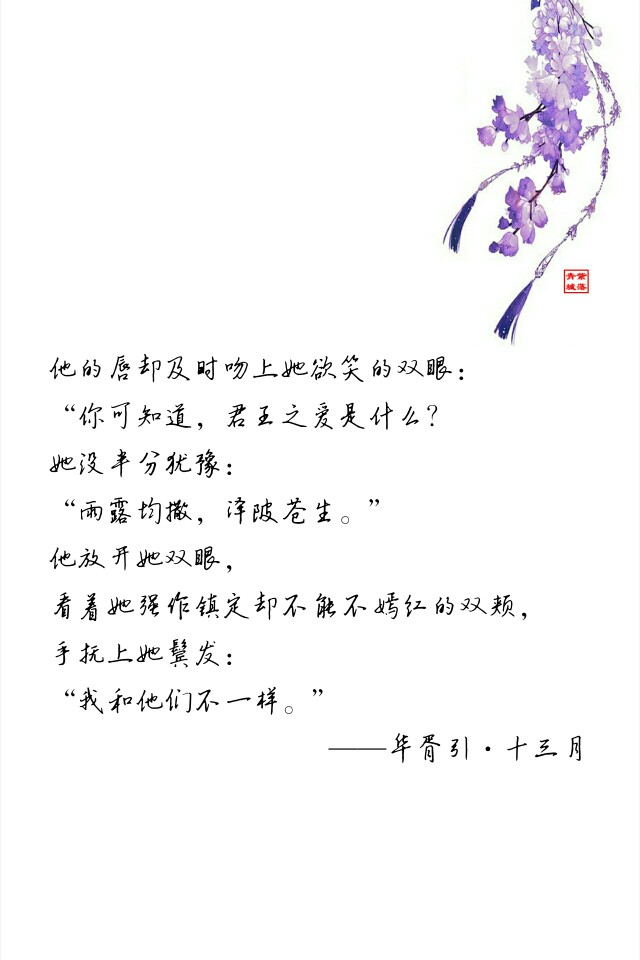 紫落
青城
他的唇却及时吻上她欲笑的双眼：
“你可知道，君王之爱是什么？
她没半分犹豫：
“雨露均撒，泽陂苍生。”
他放开她双眼，
看着她强作镇定却不能不嫣红的双颊，
手抚上她鬓发：
“我和他们不一样。”
——华胥引·十三月